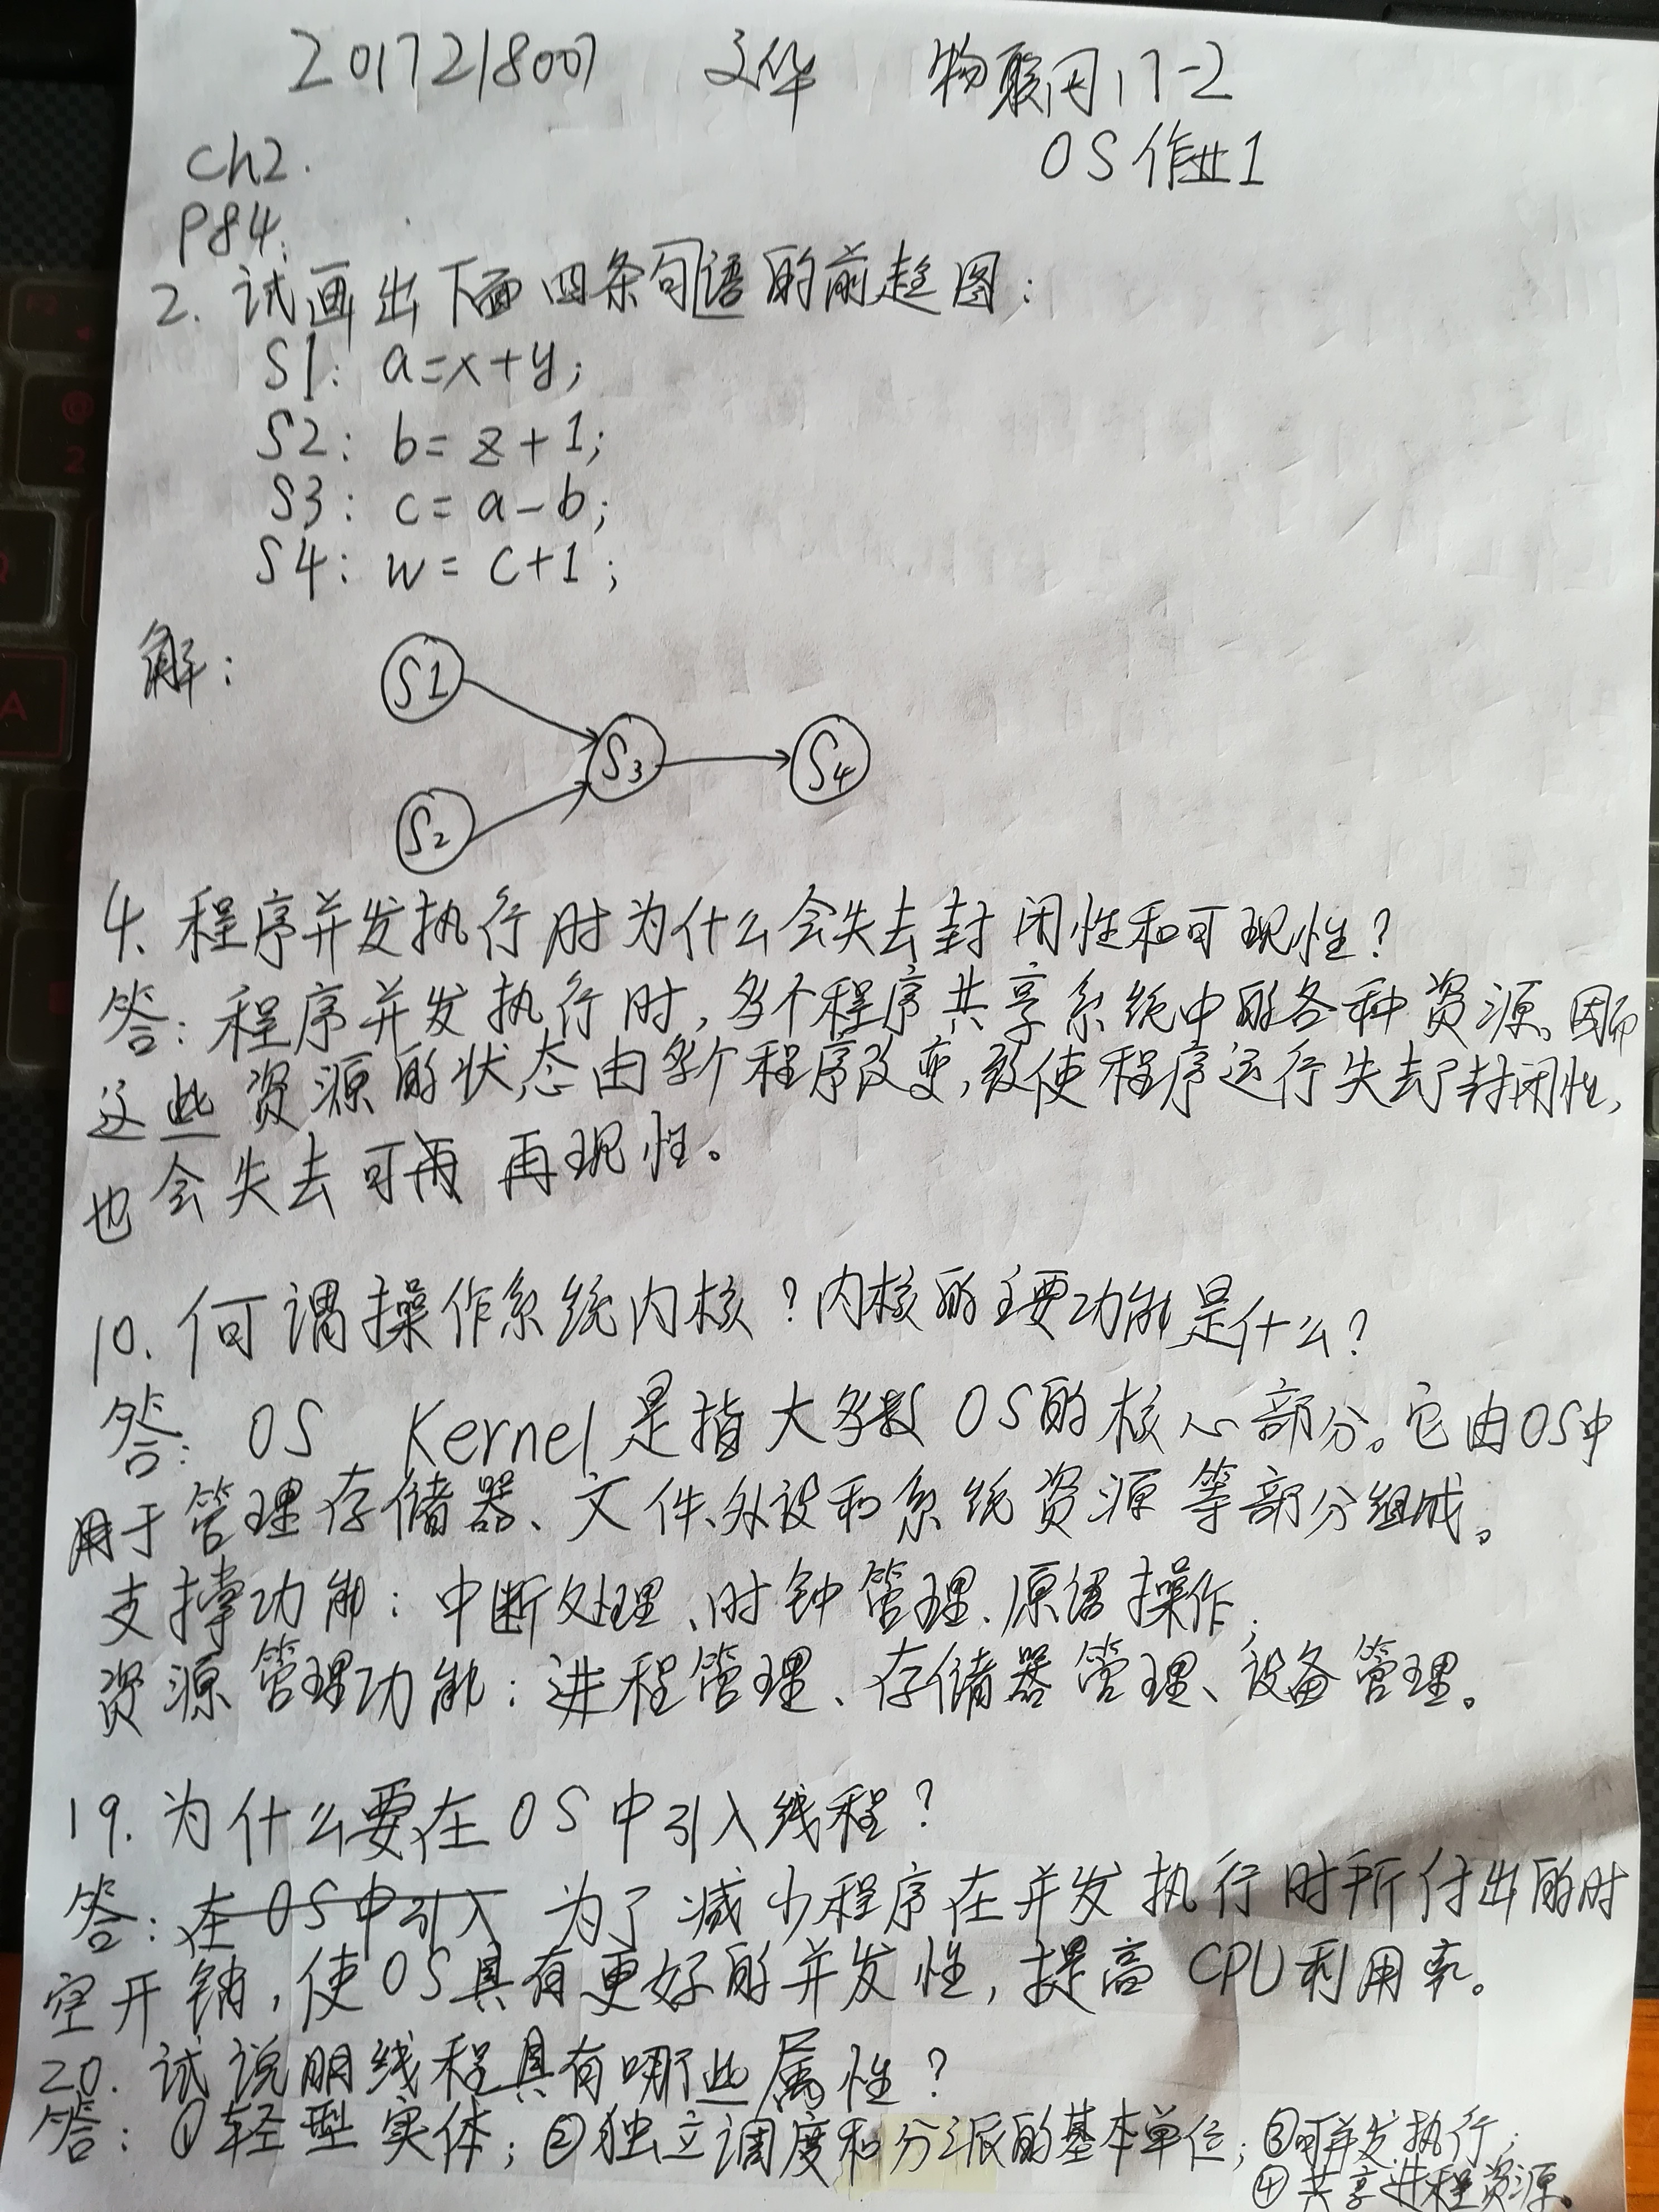 2017218007 文华 物联网17-2
OS作业1
Ch2.
P84:
2. 试画出下面四条句语的前趋图:
S1: a=x+y;
S2: b=z+1;
S3: c=a-b;
S4: w=c+1;
解:
S1
S3 S4
S2
4. 程序并发执行时为什么会失去封闭性和可现性?
答:程序并发执行时,多个程序共享系统中的各种资源。因而
这些资源的状态由多个程序改变,致使程序运行失去了封闭性,
也会失去可再 再现性。
10. 何谓操作系统内核?内核的主要功能是什么?
答: OS Kernel是指大多数OS的核心部分。它由OS中
用于管理存储器、文件、外设和系统资源等部分组成。
支撑功能:中断处理、时钟管理、原语操作;
资源管理功能:进程管理、存储器管理、设备管理。
19. 为什么要在OS中引入线程?
答:在OS中引入 为了减少程序在并发执行时所付出的时
空开销,使OS具有更好的并发性,提高CPU利用率。
20. 试说明线程具有哪些属性?
答:①轻型实体;②独立调度和分派的基本单位;③可并发执行;
④共享进程资源。